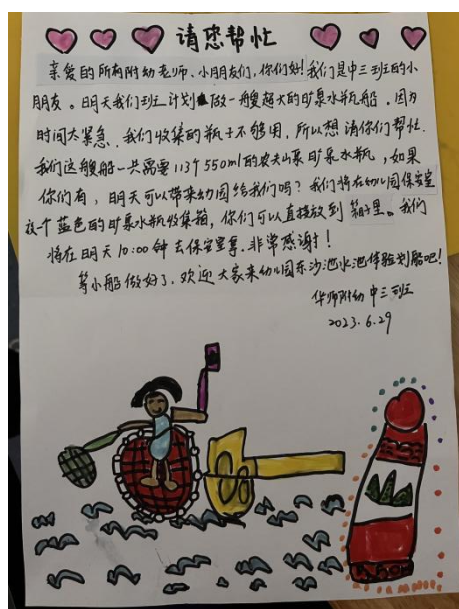 请您帮忙
亲爱的所有附幼老师、小朋友们,你们好!我们是中三班的小
朋友。明天我们班计划做一艘超大的矿泉水瓶船。因为
时间太紧急,我们收集的瓶子不够用,所以想请你们帮忙.
我们这艘船一共需要113个550ml的农夫山泉矿泉水瓶,如果
你们有,明天可以带来幼园给我们吗?我们将在幼儿园保安室
放一个蓝色的矿泉水瓶收集箱,你们可以直接放到箱子里。我们
将在明天10:00钟去保安室拿.非常感谢!
等小船做好了,欢迎大家来幼儿园东沙池水池体验划船吧!
华师附幼中三班
2023.6.29